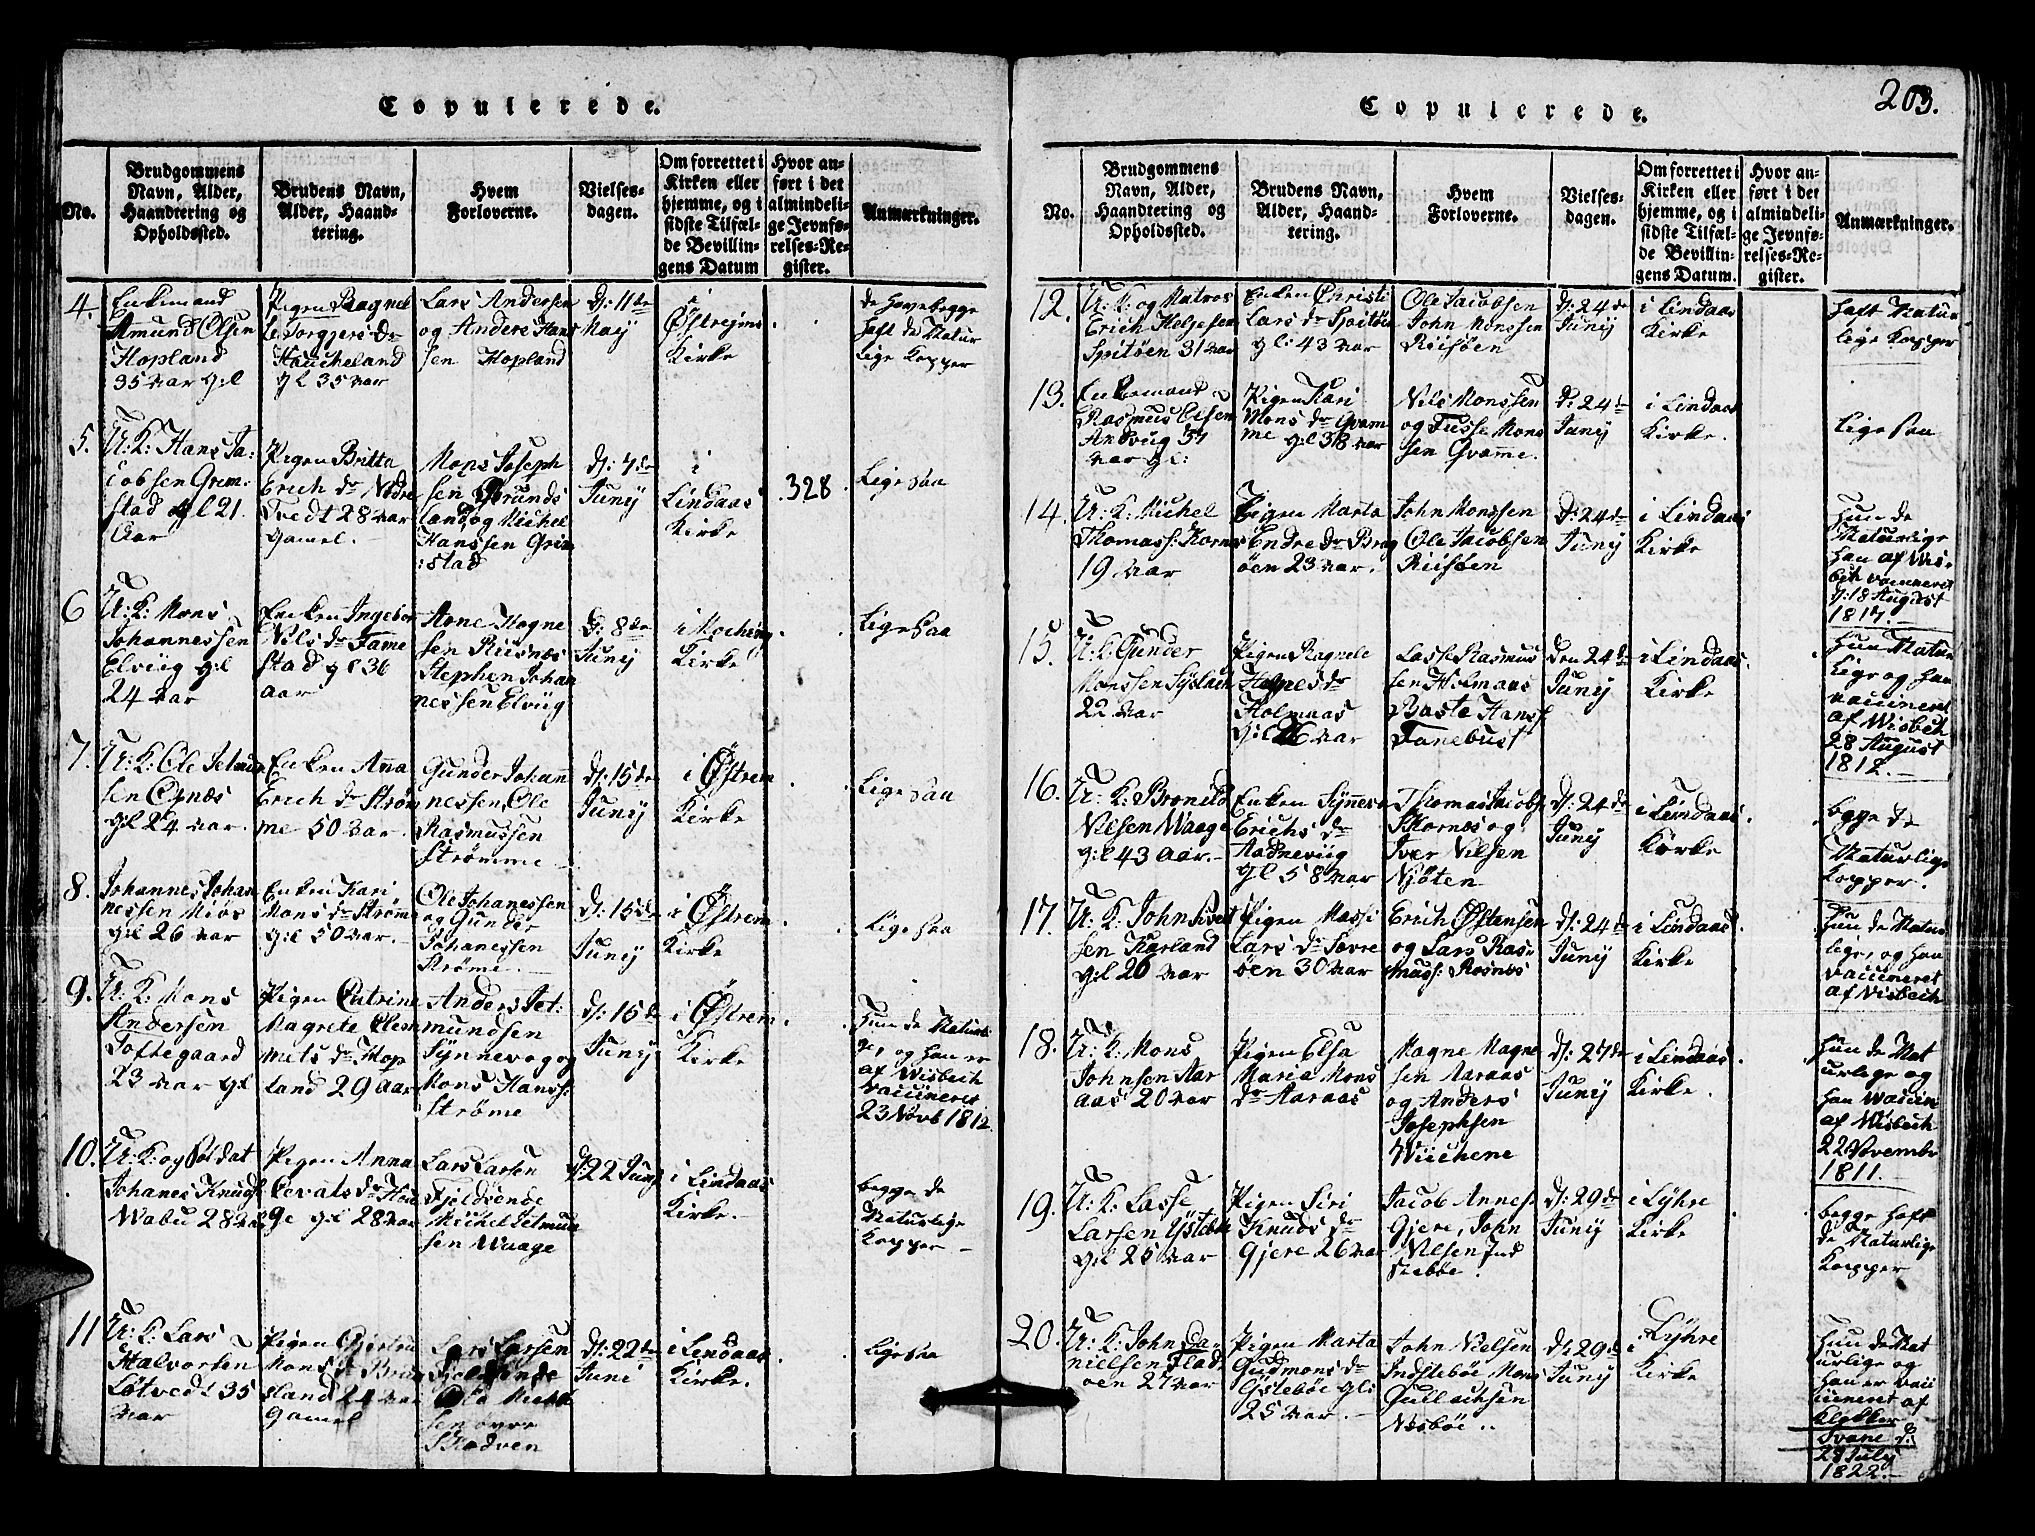 Copulerede.
No.
Brudgommens
Navn, Alder,
Haandtering og
Opholdssted.
Brudens Navn,
Alder, Haand-
tering.
Hvem
Forloverne.
Vielses-
dagen.
Om forrettet i
Kirken eller
hjemme, og i
sidste Tilfæl-
de Bevillin-
gens Datum
Hvor an-
ført i det
almindeli-
ge Jevnfø-
relses-Re-
gister.
Anmærkninger.
4.
Enkemand
Amund Olsen
Hopland
35 Aar gl
Pigen Ragnel
Torgjers dr
Haucheland
gl 35 Aar
Lars Andersen
og Anders Hans
sen Hopland
D: 11te
Maij
i
Østrejm
Kirke
de have begge
haft de Natur
lige Kopper
5.
U: K: Hans Ja:
cobsen Grim:
stad gl 21
Aar
Pigen Britta
Erich dr Nedre
Tvedt 28 Aar
gamel.
Mons Joseph
sen
og Michel
Hanssen Grim
:stad
D: 7de
Junij
i
Lindaas
Kirke
328
Lige saa
6
U: K: Mons
Johannessen
Elviig gl
24 Aar
Enken Ingebor
Nils dr Fame
stad gl 36
aar
Arne Hogne
sen Riisnæs
Stephen Johan
nessen Elviig
D: 8de
Junij
i
Kirke
Lige saa
7.
U: K: Ole Jetmun
sen
gl 24 Aar.
Enken Anna
Erich dr Strøm
me 50 Aar.
Gunder Johan
nessen, Ole
Rasmussen
Strømme
D: 15de
Junij
i Østrem
Kirke
Lige saa
8.
Johannes Johan
nessen Miøs
gl 26 Aar
Enken Kari
Mons dr Strøme
gl 50 Aar.
Ole Johanessen
og Gunder
Johanessen
Strøme.
D: 15de
Junij
i Østrem
Kirke
Lige saa
9.
U: K: Mons
Andersen
Toftegaard
23 Aar gl
Pigen Catrine
Magrete Clem
mets dr Hop
land 29 Aar
Anders Jet:
mundsen
Synnevog og
Mons Hanss:
Strøme
D: 15de
Junij
i Østrem
Kirke
Hun de Natur
og han er
af Wisbech
vaccineret
23 Novb 1812.
10.
U: K: og Soldat
Johanes Knuds
Wabu 28 Aar
Pigen Anna
gl 28 Aar
Lars Larsen
Fjeldsende
Michel Jetmun
sen Waage
D: 22 Junij
i Lindaas
Kirke.
begge de
Naturlige
Kopper
11
U: K: Lars
Halvorsen
Løtvedt 35
Aar
Pigen Gjertru
Mons dr
24 Aar
gamel
Lars Larsen
Fjeldsende
Ole
sen
D: 22de
Juni
i Lindaas
Kirke.
Lige saa
Copulerede.
203.
No.
Brudgommens
Navn, Alder,
Haandtering og
Opholdssted.
Brudens Navn,
Alder, Haand-
tering.
Hvem
Forloverne.
Vielses-
dagen.
Om forrettet i
Kirken eller
hjemme, og i
sidste Tilfæl-
de Bevillin-
gens Datum.
Hvor an-
ført i det
almindeli-
ge Jevnfø-
relses-Re-
gister.
Anmærkninger.
12.
U: K: og Matros
Erich Helgesen
Spitøen 31 Aar
Enken Christi
Lars dr Spitøe
gl: 43 Aar
Ole Jacobsen
John Monssen
Riisøen
D: 24de
Junij
i Lindaas
Kirke
haft Natur
lige Kopper
13.
Enkemand
Rasmus Olsen
57
Aar gl:
Pigen Kari
Mons dr Qvam
me gl 38 Aar
Nils Monssen
og Tufse Mons
sen Qvame.
D: 24de
Junij
i Lindaas
Kirke.
Lige saa
14.
U: K: Michel
Thomass:
19 Aar
Pigen Marta
Endre dr
øen 23 Aar.
John Monssen
Ole Jacobsen
Riisøen
D: 24de
Junij
i Lindaas
Kirke
hun de
Naturlige
han af Wis-
bech vaccineret
D: 18 August
1817.
15.
U: K: Gunder
Monssen
22 Aar
Pigen Ragnele
Holmaas
gl 26 Aar
Lasse Rasmus
sen Holmaas
Baste Hanss:
Tanebust
Den 24de
Junij
i Lindaas
Kirke
Hun Natur
lige og han
vaccineret
af Wisbech
28 August
1812.
16.
U: K: Bronild
Nilsen Waage
gl 43 Aar.
Enken Synneva
Erichs dr
Aadneviig
gl 58 Aar
Thomas Jacobs
og
Iver Nilsen
Njøten
D: 24de
Junij
i Lindaas
Kirke
begge de
Naturlige
Kopper.
17.
U: K: John Sivert
sen
gl 20 Aar
Pigen Massi
Lars dr Sovre
øen 30 Aar
Erich Østensen
og Lars Ras-
muss: Rosnes
D: 24de
Junij
i Lindaas
Kirke
Hun de Natur
lige, og han
vaccineret
af Wisbech
18.
U: K: Mons
Johnsen Aar
aas 20 Aar
Pigen Elsa
Maria Mons
dr Aaraas
Magne Magne
sen Aaraas
og Anders
Josephsen
Wiichene
D: 27de
Junij
i Lindaas
Kirke.
hun de Nat
urlige og
han Waccin
af Wisbech
22 Novembr
1811.
19.
U: K: Lasse
Larsen Ystebøe
gl 25 Aar
Pigen Siri
Knuds dr
Gjere 26 Aar
Jacob Annes:
Gjere, John
Nilsen Ind
stebøe.
D: 29de
Junij
i Lyhre
Kirke
begge haft
de Naturlige
Kopper
20.
U: K: John Da
nielsen Flad
øen 27 Aar
Pigen Marta
Gudmons dr
Ystebøe gl:
25 Aar.
John Nielsen
Indstebøe Mons
Gullachsen
Næsbøe.
D: 29de
Junij
i Lyhre
Kirke
Hun de Nat
urlige og
han er vacc
cineret af
Klokker
Svane d:
28 July
1822.